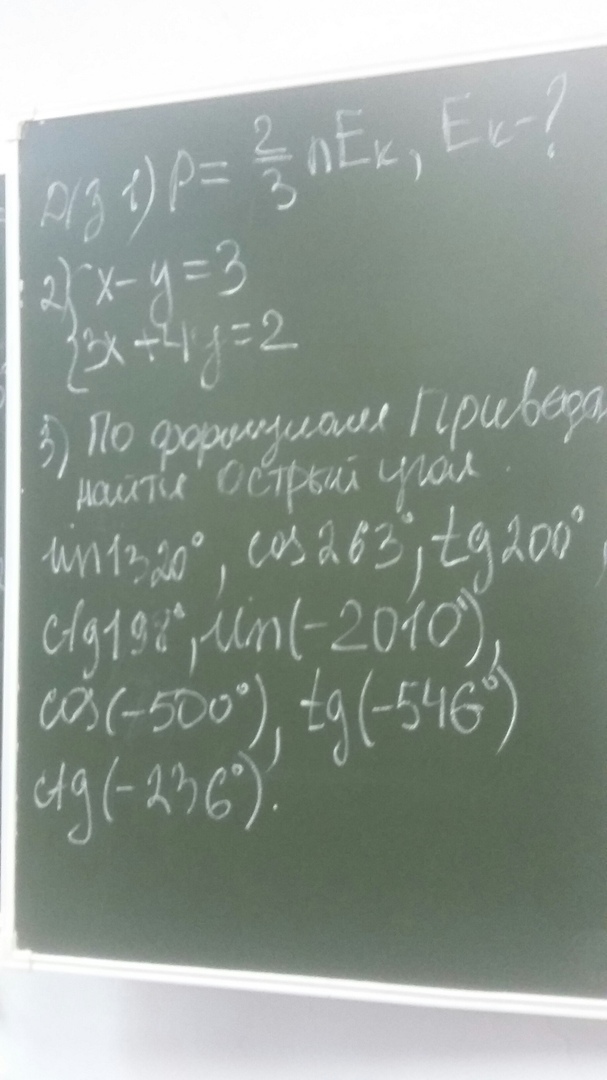 Д/з 1) P = 2/3 nEк, Eк - ?
2) { x - y = 3
{ 3x + 4y = 2
3) По формулам Приведе
найти острый угол.
sin1320°, cos263°, tg200°,
ctg198°, sin(-2010°),
cos(-500°), tg(-546°)
ctg(-236°).